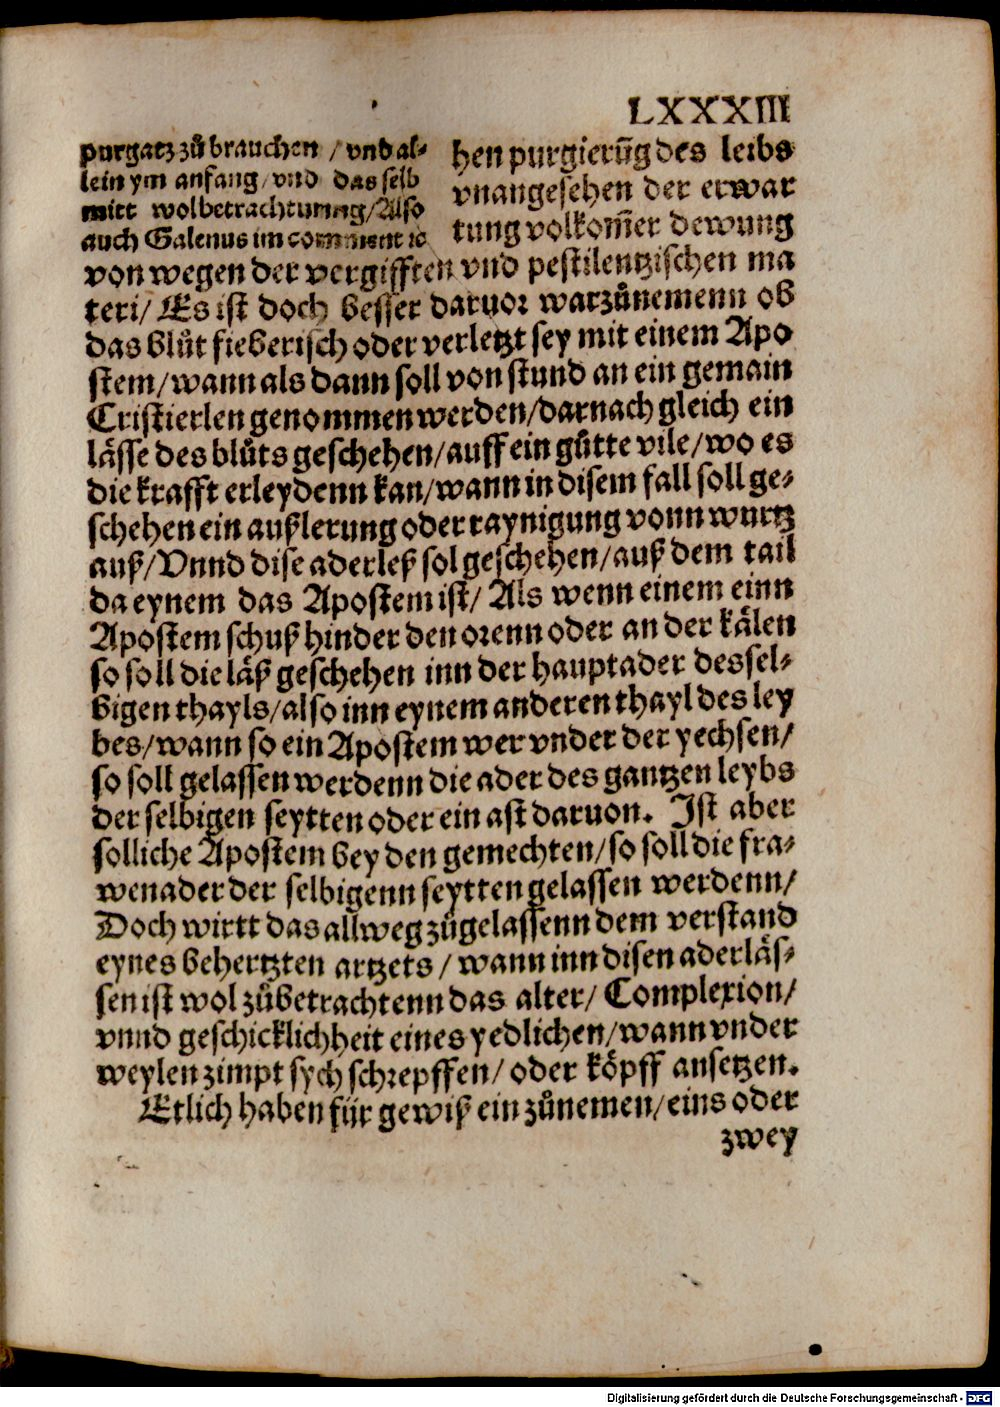 LXXXIII
purgatz zuͦ brauchen / vnd al-
lein ym anfang / vnd das selb
mitt wolbetrachtunng / Also
auch Galenus im comment ic
hen purgierūg des leibs
vnangesehen der erwar
tung volkom̄er dewung
von wegen der vergifften vnd pestilentzischen ma
teri / Es ist doch besser daruor warzuͦnemenn ob
das bluͦt fieberisch oder verletzt sey mit einem Apo
stem / wann als dann soll von stund an ein gemain
Cristierlen genommen werden / darnach gleich ein
lässe des bluͦts geschehen / auff ein guͦtte vile / wo es
die krafft erleydenn kan / wann in disem fall soll ge-
schehen ein außlerung oder raynigung vonn wurtz
auß / Vnnd dise aderleß sol geschehen / auß dem tail
da eynem das Apostem ist / Als wenn einem einn
Apostem schuß hinder den orenn oder an der kälen
so soll die läß geschehen inn der hauptader des sel-
bigen thayls / also inn eynem anderen thayl des ley
bes / wann so ein Apostem wer vnder der yechsen /
so soll gelassen werdenn die ader des gantzen leybs
der selbigen seytten oder ein ast daruon. Ist aber
solliche Apostem bey den gemechten / so soll die fra-
wenader der selbigenn seytten gelassen werdenn /
Doch wirtt das allweg zuͦgelassenn dem verstand
eynes behertzten artzets / wann inn disen aderläs-
sen ist wol zuͦbetrachtenn das alter / Complexion /
vnnd geschicklichheit eines yedlichen / wann vnder
weylen zimpt sych schrepffen / oder köpff ansetzen.
Etlich haben für gewiß ein zuͦnemen / eins oder
zwey
Digitalisierung gefördert durch die Deutsche Forschungsgemeinschaft - DFG